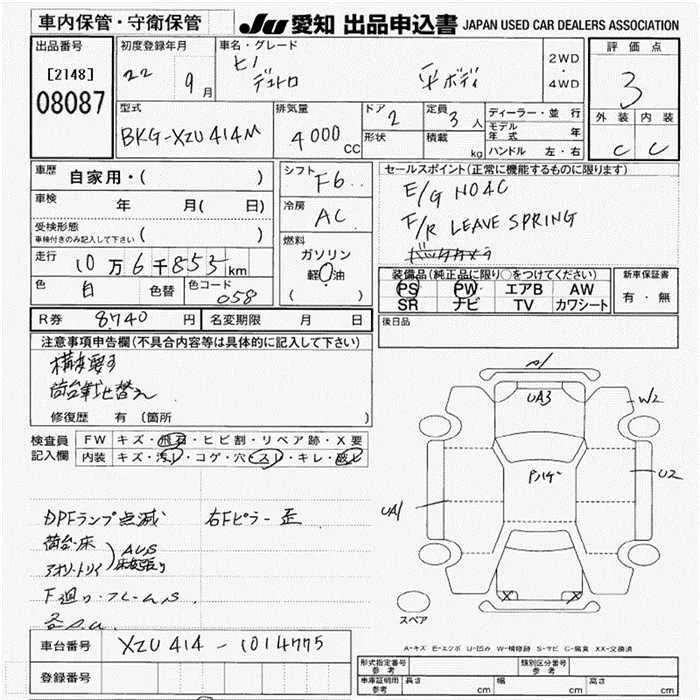 車内保管・守衛保管 JU 愛知 出品申込書 JAPAN USED CAR DEALERS ASSOCIATION
出品番号 初度登録年月 車名・グレード 2WD・4WD 評価点
[2148] 22 9月 ヒノ デュトロ 平ボディ 3
08087 型式 排気量 ドア 2 定員 3人 ディーラー・並行 外装 内装
BKG-XZU414M 4000cc 形状 積載 kg モデル年式 年 C C
ハンドル 左・右
車歴 自家用・( ) シフト F6 セールスポイント(正常に機能するものに限ります)
車検 年 月( 日) 冷房 AC E/G N04C
受検形態 車検付きのみ記入して下さい ( ) F/R LEAVE SPRING
走行 10万6千853km 燃料 ガソリン 軽油 ( ) バックカメラ
色 白 色替 色コード 058 装備品(純正品に限り○をつけてください) 新車保証書
PS PW エアB AW 有・無
SR ナビ TV カワシート
R券 8,740円 名変期限 月 日 後日品
注意事項申告欄(不具合内容等は具体的に記入して下さい)
構変要す
荷台載せ替え
修復歴 有 (箇所 )
検査員記入欄 FW キズ・飛石・ヒビ割・リペア跡・X要
内装 キズ・汚レ・コゲ・穴・スレ・キレ・破レ
A1
UA3
W2
Pハゲ
U2
UA1
X X
スペア
DPFランプ点滅 右Fピラー歪
荷台・床
アオリ・トリイ
F廻り
A-キズ E-エクボ U-凹み W-補修跡 S-サビ C-腐食 XX-交換済
車台番号 XZU414-1014775
登録番号
形式指定番号 参考 類別区分番号 参考
車庫証明用 参考 長さ cm 幅 cm 高さ cm